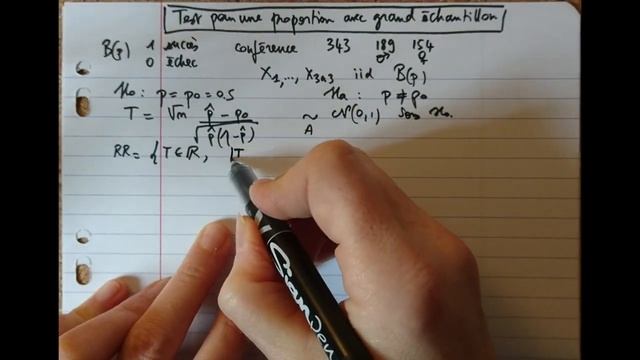 Test pour une proportion avec grand échantillon
B(p) 1 succès conférence 343 189 ♂ 154 ♀
0 échec
X1,..., X343 iid B(p)
H0 : p = p0 = 0.5 Ha : p ≠ p0
T = √n (p̂ - p0) / √(p̂(1-p̂)) ~A N(0,1) sous H0.
RR = { T ∈ ℝ, |T
Giant